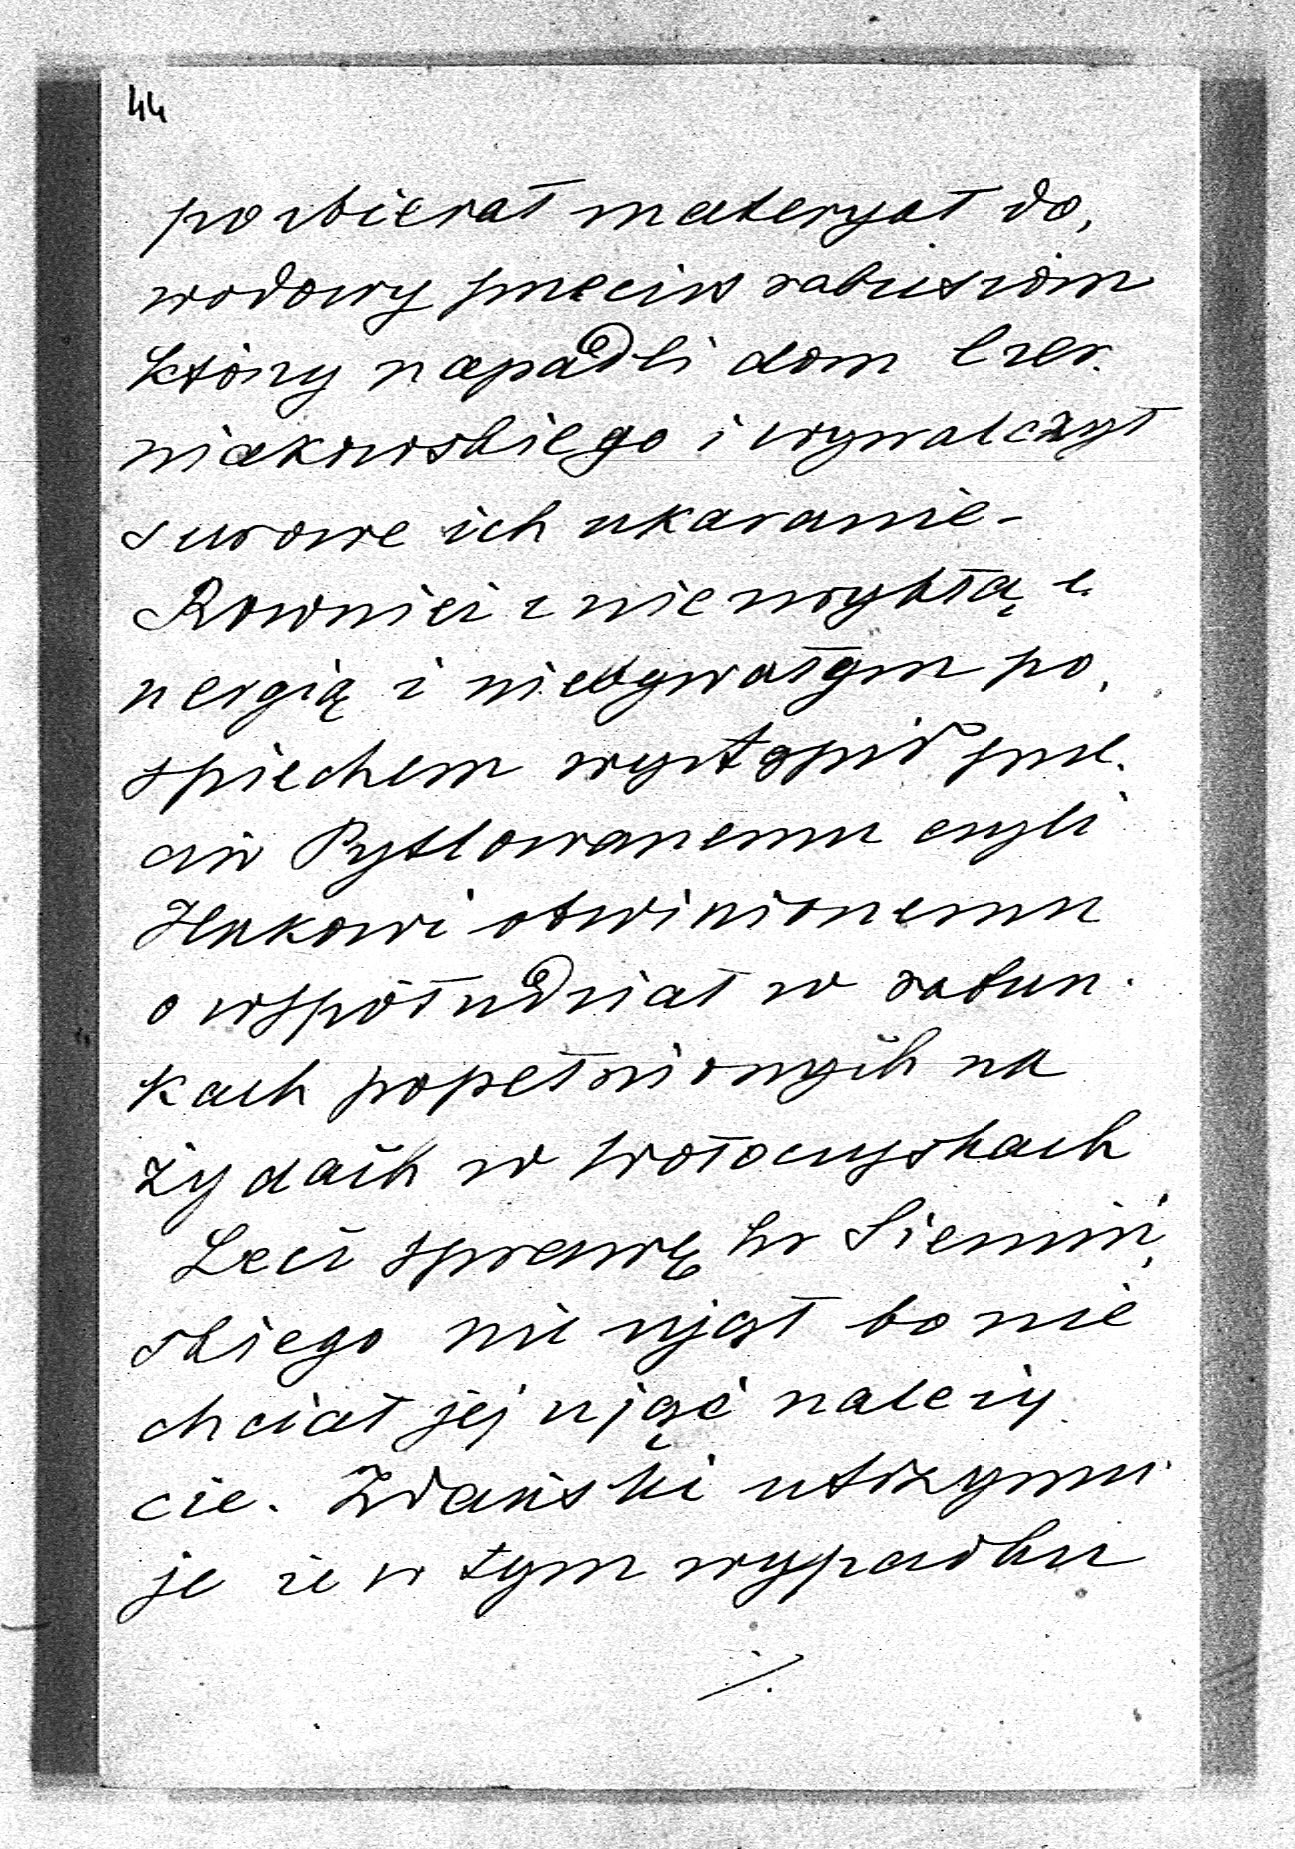 44
pozbierał materyał do,
wodowy przeciw rabusióm
którzy napadli dom Czer.
niakowskiego i wywalczył
surowe ich ukaranie –
Rownież z niezwykłą e.
nergią i niebywałym po,
spiechem wystąpił prze.
ciw Pytlowanemu czyli
Hukowi obwinionemu
o współudział w rabun.
kach popełnionych na
żydach w Wołoczyskach
Lecz sprawę hr Siemiń,
skiego nie ujął bo nie
chciał jej ująć należy.
cie. Zdański utrzymu.
je że w tym wypadku
./.